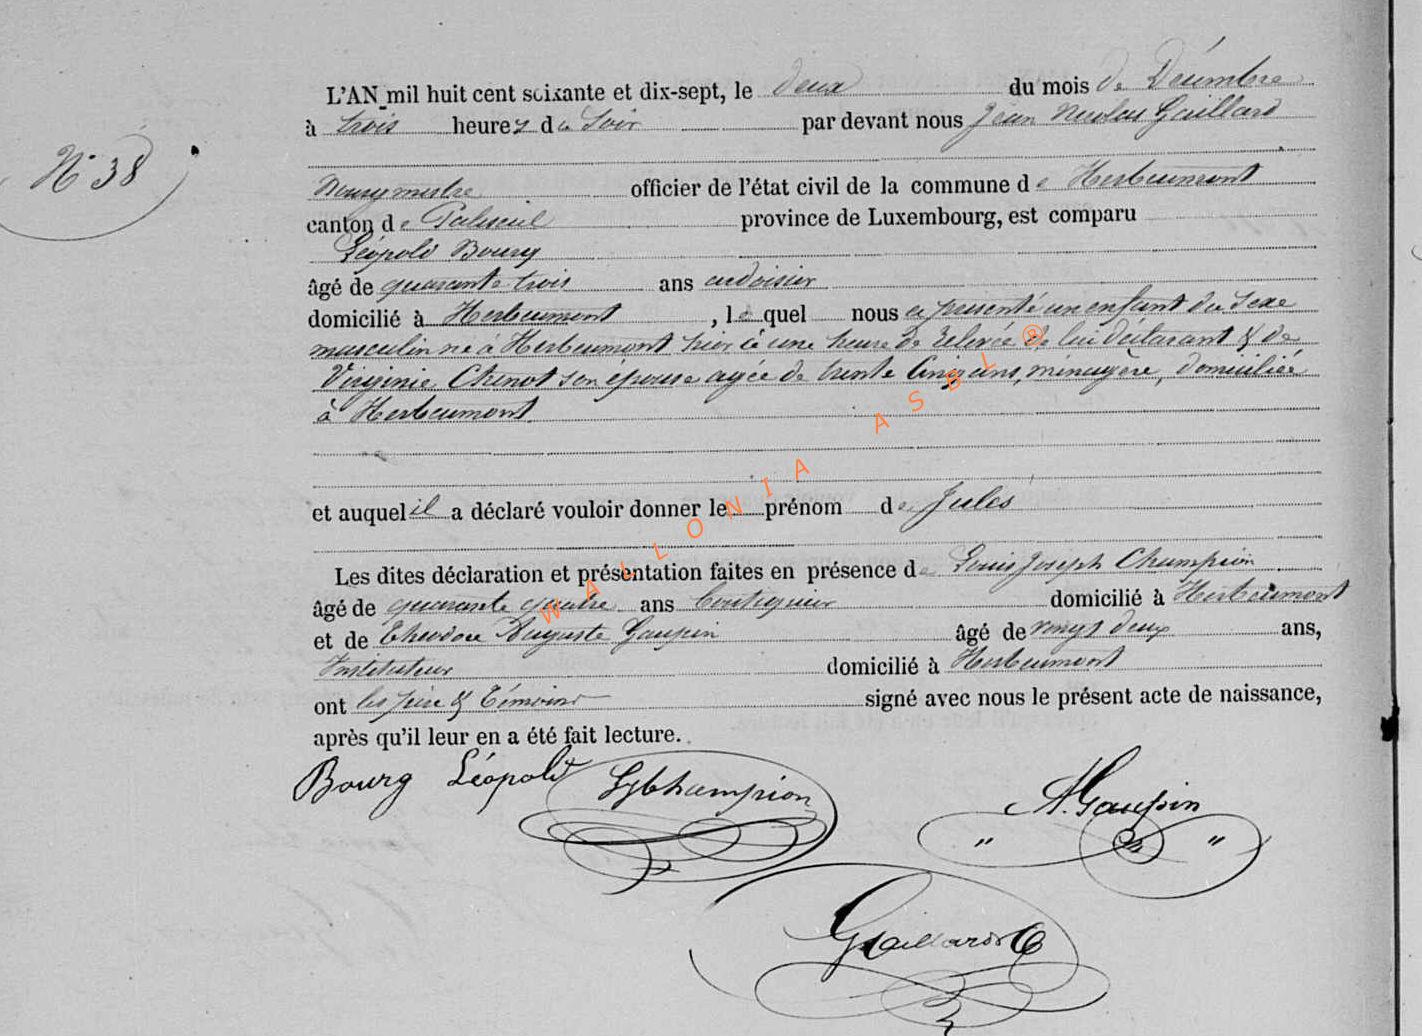 L'AN mil huit cent soixante et dix-sept, le deux du mois de Décembre
à trois heures du Soir par devant nous Jean Nicolas Gaillard
N° 38
Bourgmestre officier de l'état civil de la commune de Herbeumont
canton de Paliseul province de Luxembourg, est comparu
Léopold Bourg
âgé de quarante trois ans ardoisier
domicilié à Herbeumont, lequel nous a présenté un enfant du sexe
masculin né à Herbeumont hier à une heure de relevée de lui déclarant & de
Virginie Chenot son épouse agée de trente cinq ans, ménagère, domiciliée
à Herbeumont
et auquel il a déclaré vouloir donner le prénom de Jules
Les dites déclaration et présentation faites en présence de Louis Joseph Champion
âgé de quarante quatre ans boutiquier domicilié à Herbeumont
et de Théodore Auguste Gaupin âgé de vingt deux ans,
Instituteur domicilié à Herbeumont
ont les père & témoins signé avec nous le présent acte de naissance,
après qu'il leur en a été fait lecture.
Bourg Léopold Champion A. Gaupin
Gaillard
WALLONIA ASBL ®